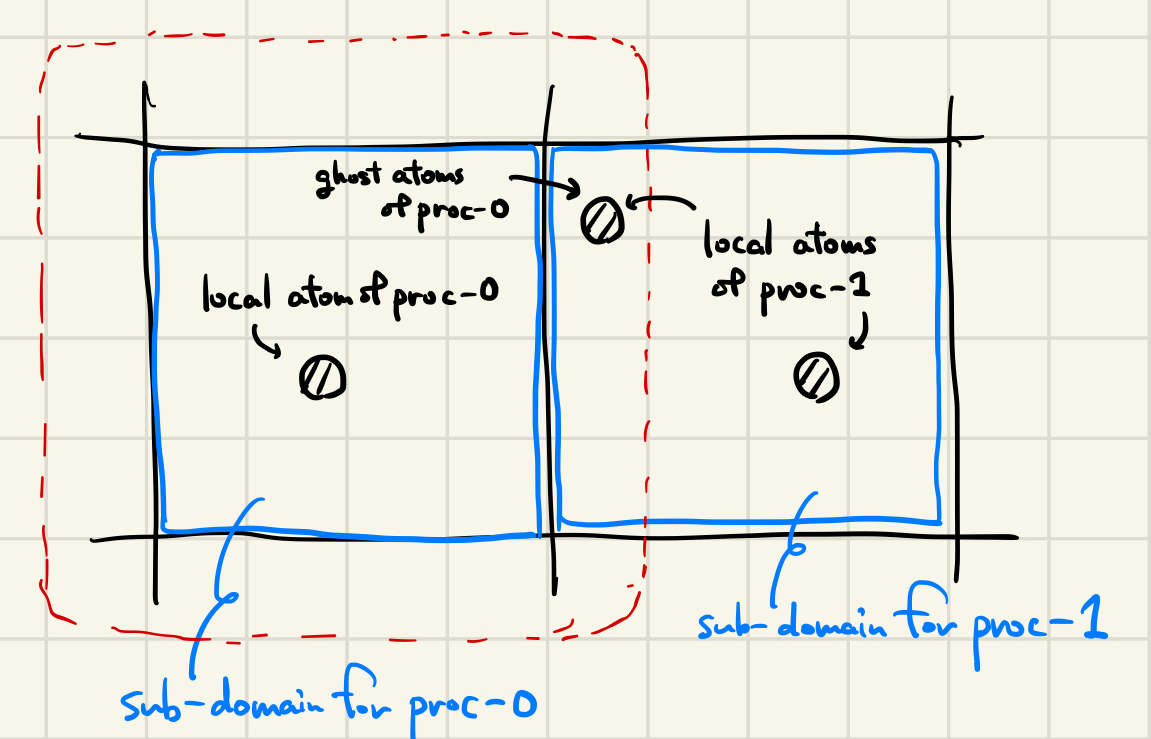 ghost atoms
of proc-0
local atom of proc-0
local atoms
of proc-1
sub-domain for proc-1
sub-domain for proc-0